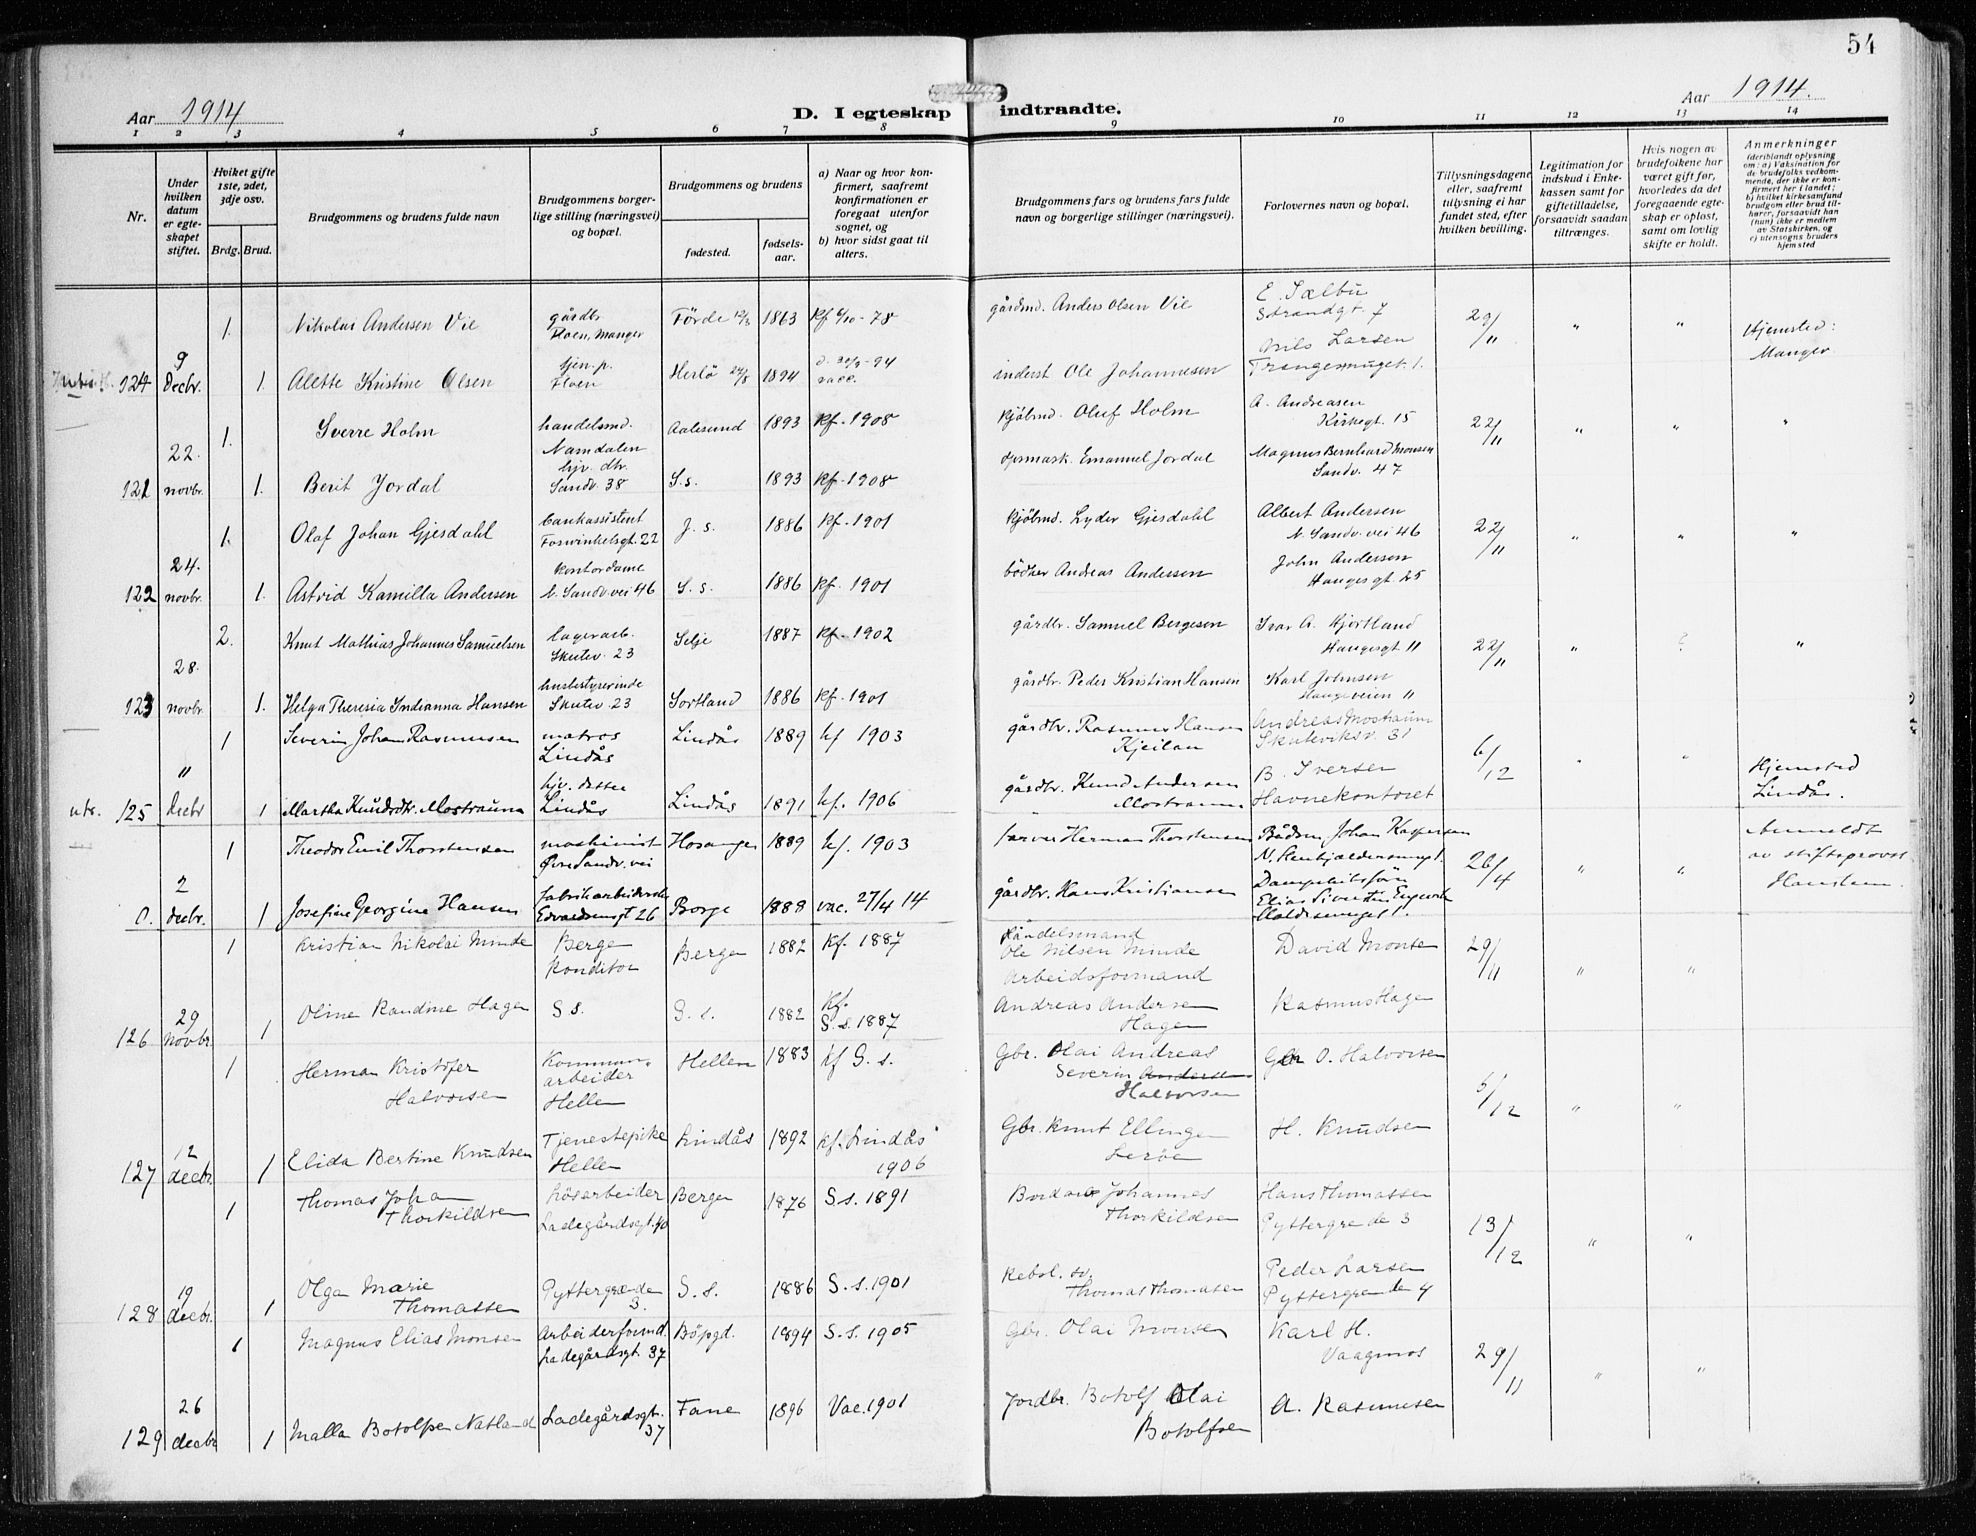 54
Aar 1914
D. I egteskap indtraadte.
Aar 1914.
1 2 3 4 5 6 7 8 9 10 11 12 13 14
Nr.
Under hvilken datum er egteskapet stiftet.
Hvilket gifte 1ste, 2det, 3dje osv.
Brdg. Brud.
Brudgommens og brudens fulde navn
Brudgommens borgerlige stilling (næringsvei) og bopæl.
Brudgommens og brudens
fødested.
fødselsaar.
a) Naar og hvor konfirmert, saafremt konfirmationen er foregaat utenfor sognet, og
b) hvor sidst gaat til alters.
Brudgommens fars og brudens fars fulde navn og borgerlige stillinger (næringsvei).
Forlovernes navn og bopæl.
Tillysningsdagene eller, saafremt tillysning ei har fundet sted, efter hvilken bevilling.
Legitimation for indskud i Enkekassen samt for giftetilladelse, forsaavidt saadan tiltrænges.
Hvis nogen av brudefolkene har været gift før, hvorledes da det foregaaende egteskap er opløst, samt om lovlig skifte er holdt.
Anmerkninger
(deriblandt oplysning om: a) Vaksination for de brudefolks vedkommende, der ikke er konfirmert her i landet; b) hvilket kirkesamfund brudgom eller brud tilhører, forsaavidt han (hun) ikke er medlem av Statskirken, og c) utensogns bruders hjemsted
1. Nikolai Andersen Vil gårdbr Floen, Manger Førde 12/3 1863 kf 6/10-78 gårdmd. Anders Olsen Vil E. Sælbu Strandgt. 7 29/11 " " Hjemsted: Manger
124 9 Decbr. 1. Alette Kristine Olsen tjen.p. Floen Herlø 24/8 1894 vacc. inderst Ole Johannesen Nils Larsen Trangesmuget. 1.
1. Sverre Holm handelsmd. Namdalen Aalesund 1893 kf. 1908 kjøbmd. Oluf Holm A. Andreasen Kirkegt. 15 22/11 " " "
121 22. novbr. 1. Berit Jordal hjv. dtr. Sandv. 38 S.s. 1893 kf. 1908 opsmask. Emanuel Jordal Magnus Bernhard Monsen Sandv. 47
1. Olaf Johan Gjesdahl bankassistent Foswinkelsgt. 22 J. s. 1886 kf. 1901 kjøbmd. Lyder Gjesdahl Albert Andersen N. Sandv. vei 46 22/11 " " "
122 24. novbr. 1. Astrid Kamilla Andersen kontordame N. Sandv. vei 46 S. s. 1886 kf. 1901 bødker Andreas Andersen John Andersen Haugesgt 25
2. Knut Mathias Johannes Samuelsen lagerarb. Skutev. 23 Selje 1887 kf. 1902 gårdbr. Samuel Bergesen Ivar A. Hjortland Haugesgt 11 22/11 " ? "
123 28. novbr. 1. Helga Theresia Indianna Hansen husbestyrerinde Skutev. 23 Sortland 1886 kf. 1901 gårdbr. Peder Kristian Hansen Karl Johnsen Haugeveien 11
1 Severin Johan Rasmussen matros Lindås Lindås 1889 kf 1903 gårdbr. Rasmus Hansen Kjeilen Andreas Mostraum Skuteviksv. 31 6/12 " " Hjemsted Lindås.
uts. 125 " Decbr 1 Martha Knudsdtr. Mostraum hjv. datter Lindås Lindås 1891 kf. 1906 gårdbr. Knud Andersen Mostraum B. Iversen Havnekontoret
1 Theodor Emil Thorstensen maskinist Øvre Sandv. vei Hosanger 1889 kf. 1903 farver Herman Thorstensen Bådsm. Johan Kaspersen 26/4 " " Anmeldt av stiftsprovst Hansteen
0. 2 decbr. 1 Josefine Georgine Hansen fabrikarbeiderske Edvardsensgt 26 Borge 1888 vac. 27/4 14 gårdbr. Hans Kristiansen
1 Kristian Nikolai Minde Bergen Konditor Bergen 1882 Kf. 1887 Handelsmand Ole Nilsen Minde David Monsen 29/11 " "
126 29 Novbr. 1 Oline Randine Hagen S s. S. s. 1882 Kf. S. s. 1887 Arbeidsformand Andreas Andersen Hagen Rasmus Hagen
1 Herman Kristofer Halvorsen Kommunearbeider Hellen Hellen 1883 kf S. s. Gbr. Olai Andreas Severin Andersen Halvorsen Gbr O. Halvorsen 5/12 " "
127 12 decbr. 1 Elida Bertine Knudsen Tjenestepike Hellen Lindås 1892 kf. Lindås 1906 Gbr. Knut Ellingen Lerøe H. Knudsen
1 Thomas Johan Thorkildsen Løsarbeider Ladegårdsgt. 40 Bergen 1876 S. s. 1891 Johannes Thorkildsen Hans Thomassen Pyttergrenden 3 13/12 " "
128 19 decbr. 1 Olga Marie Thomassen Pyttergrenden 3. S. s. 1886 S. s. 1901 Rebsl. sv. Thomas Thomasen Peder Larsen Pyttergrenden 4
1 Magnus Elias Monsen Arbeiderformd. Ladegårdsgt. 37 Bøpgd. 1894 S. s. 1905 Gbr. Olai Monsen Karl H. Vaagmos 29/11 " "
129 26 decbr 1 Malla Botolfsen Natland Ladegårdsgt. 37 Fane 1896 Vac. 1901 Jordbr. Botolf Olai Botolfsen A. Rasmussen